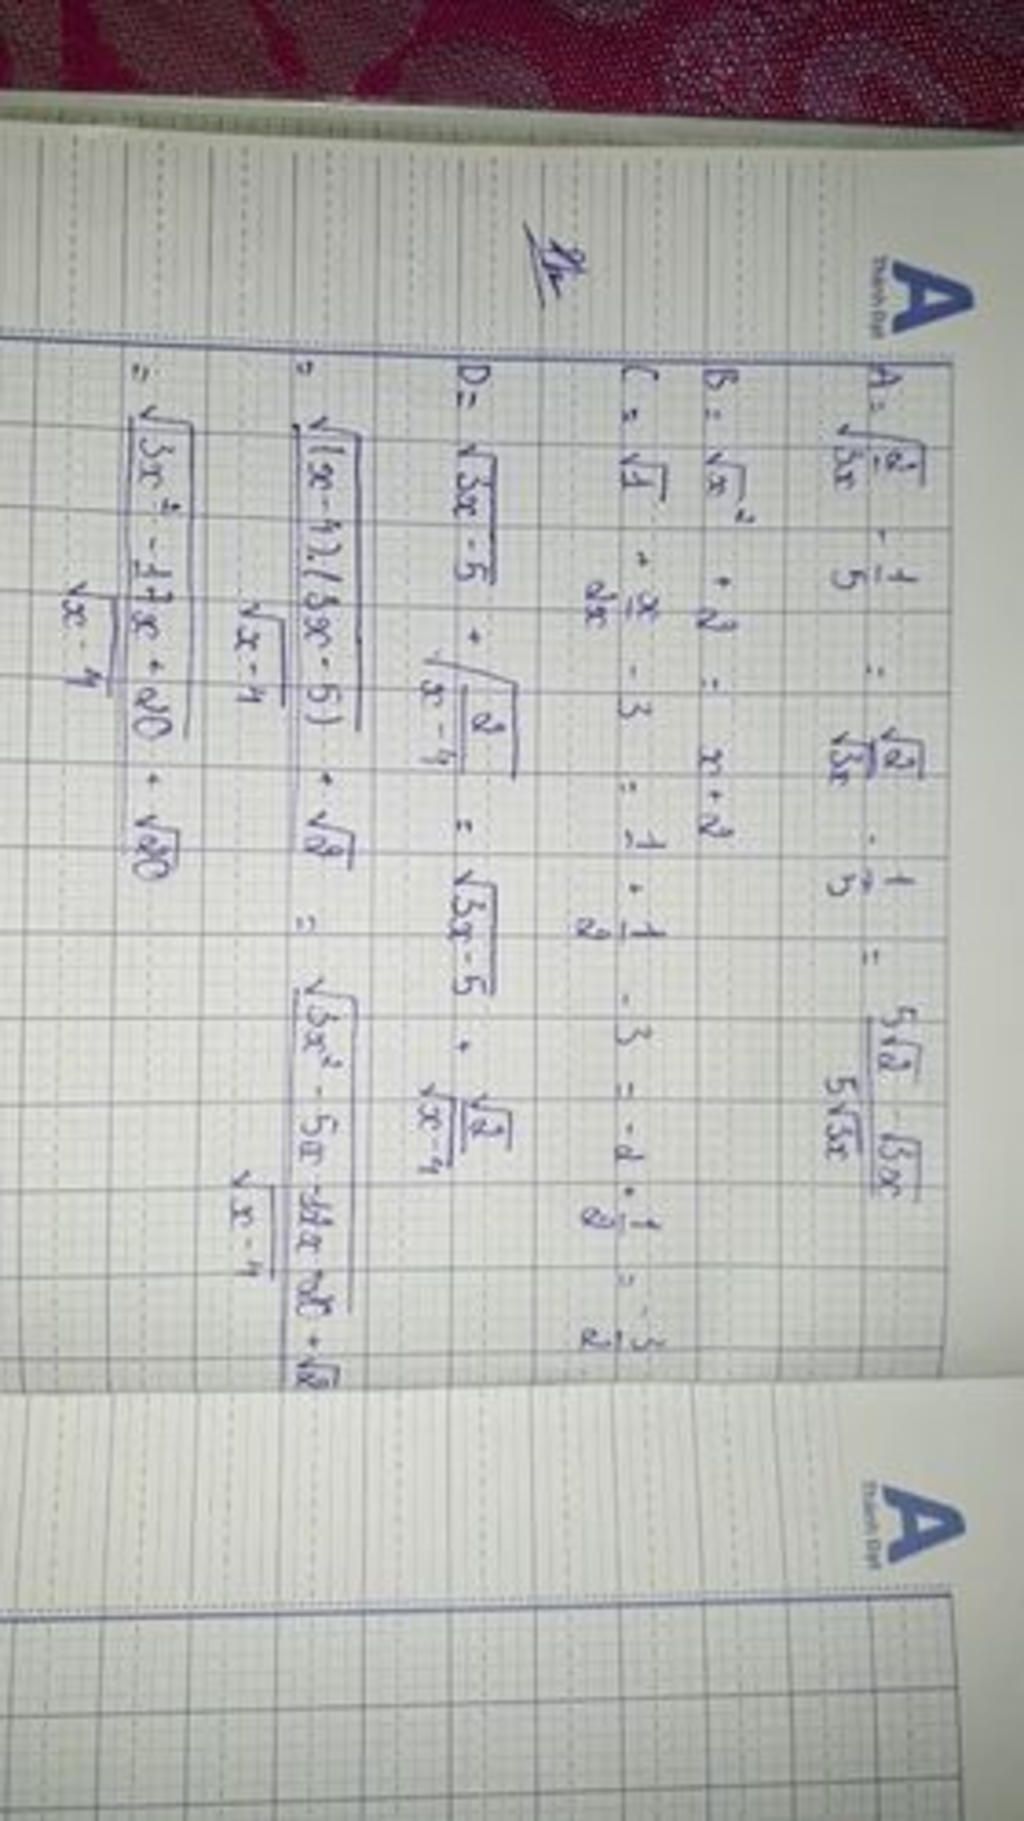 A
Thành Đạt
A = √(2/3x) - 1/5 = √2/√3x - 1/5 = (5√2 - √3x)/(5√3x)
B = √x² + 2 = x + 2
C = √1 + x/2x - 3 = 1 + 1/2 - 3 = -2 + 1/2 = -3/2
D = √(3x - 5) + √(2/(x - 4)) = √(3x - 5) + √2/√(x - 4)
= (√((x - 4).(3x - 5)) + √2)/√(x - 4) = (√(3x² - 5x - 12x + 20) + √2)/√(x - 4)
= (√(3x² - 17x + 20) + √20)/√(x - 4)
A
Thành Đạt